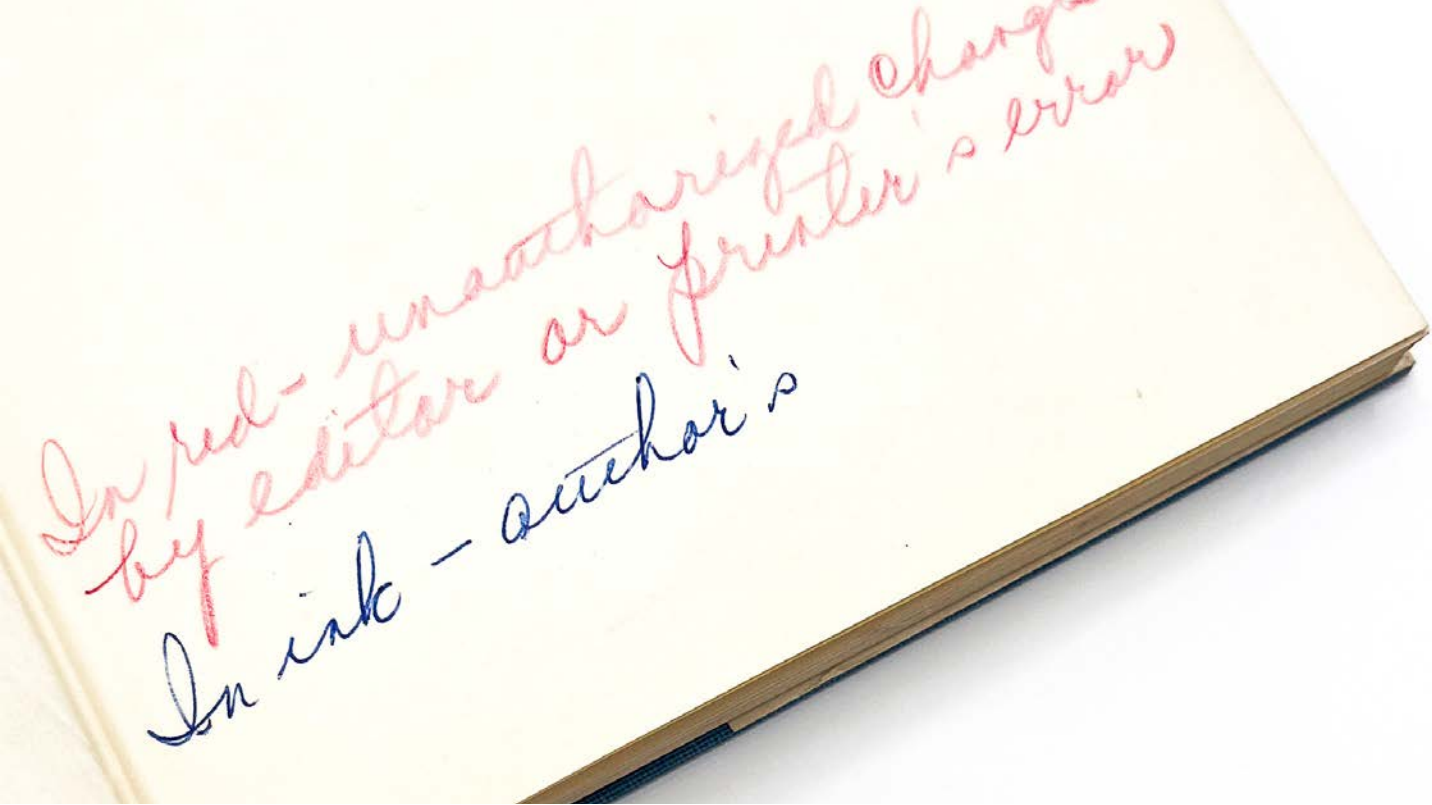 In red - unauthorized change
by editor or printer's error
In ink - author's